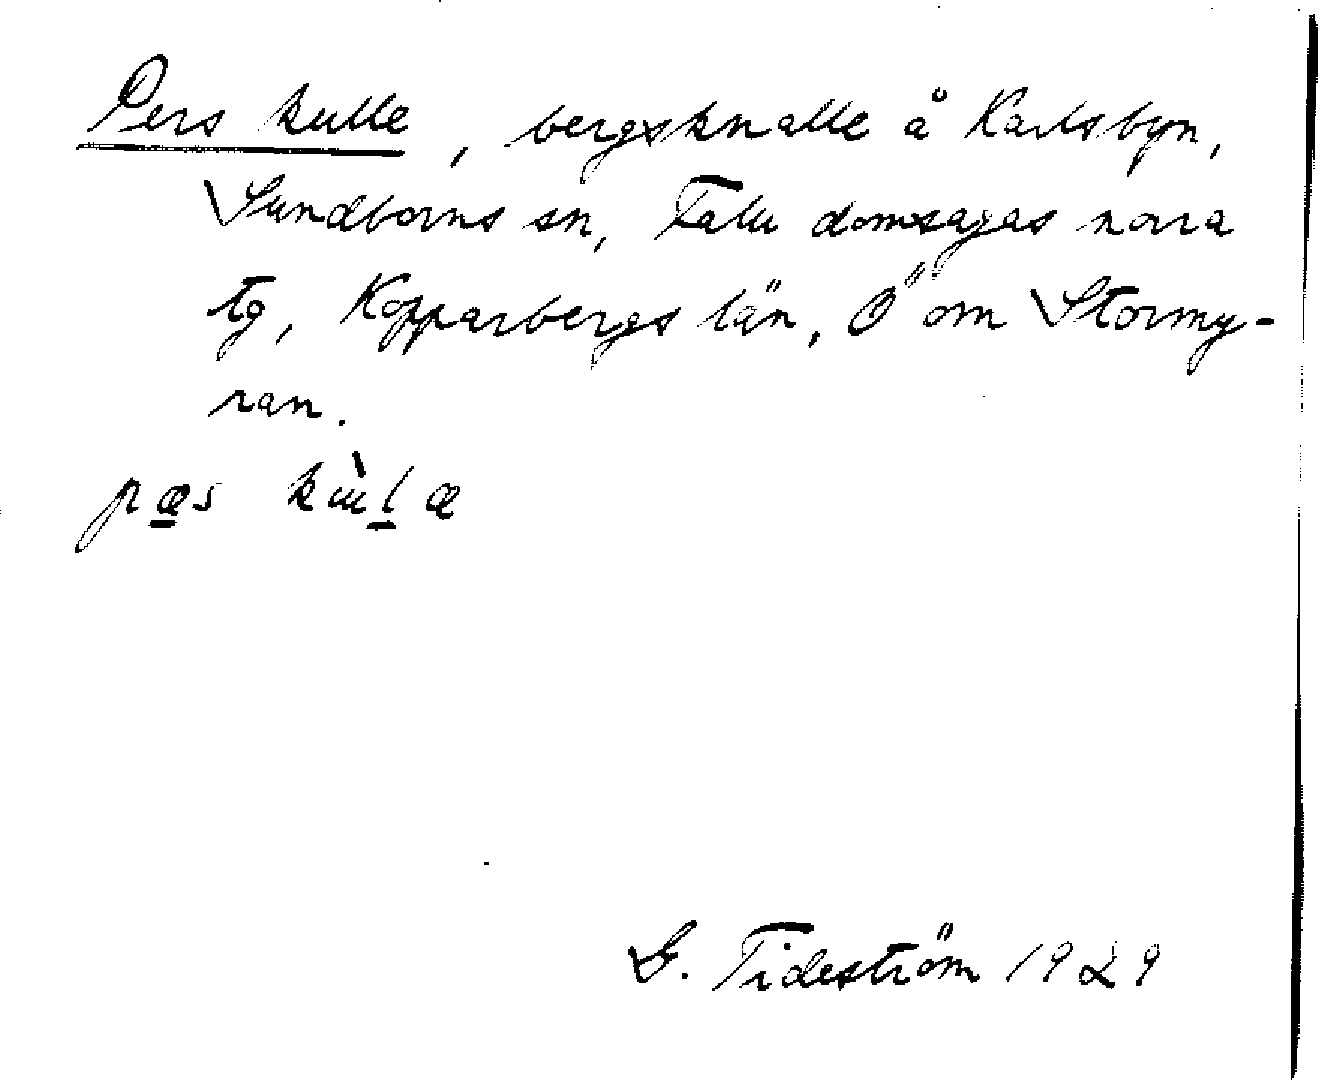 Pers kulle, bergsknalle å Karlsbyn,
Sundborns sn, Falu domsagas norra
tg, Kopparbergs län, Ö om Stormy-
ran.
pæs kùlæ
G. Tideström 1929